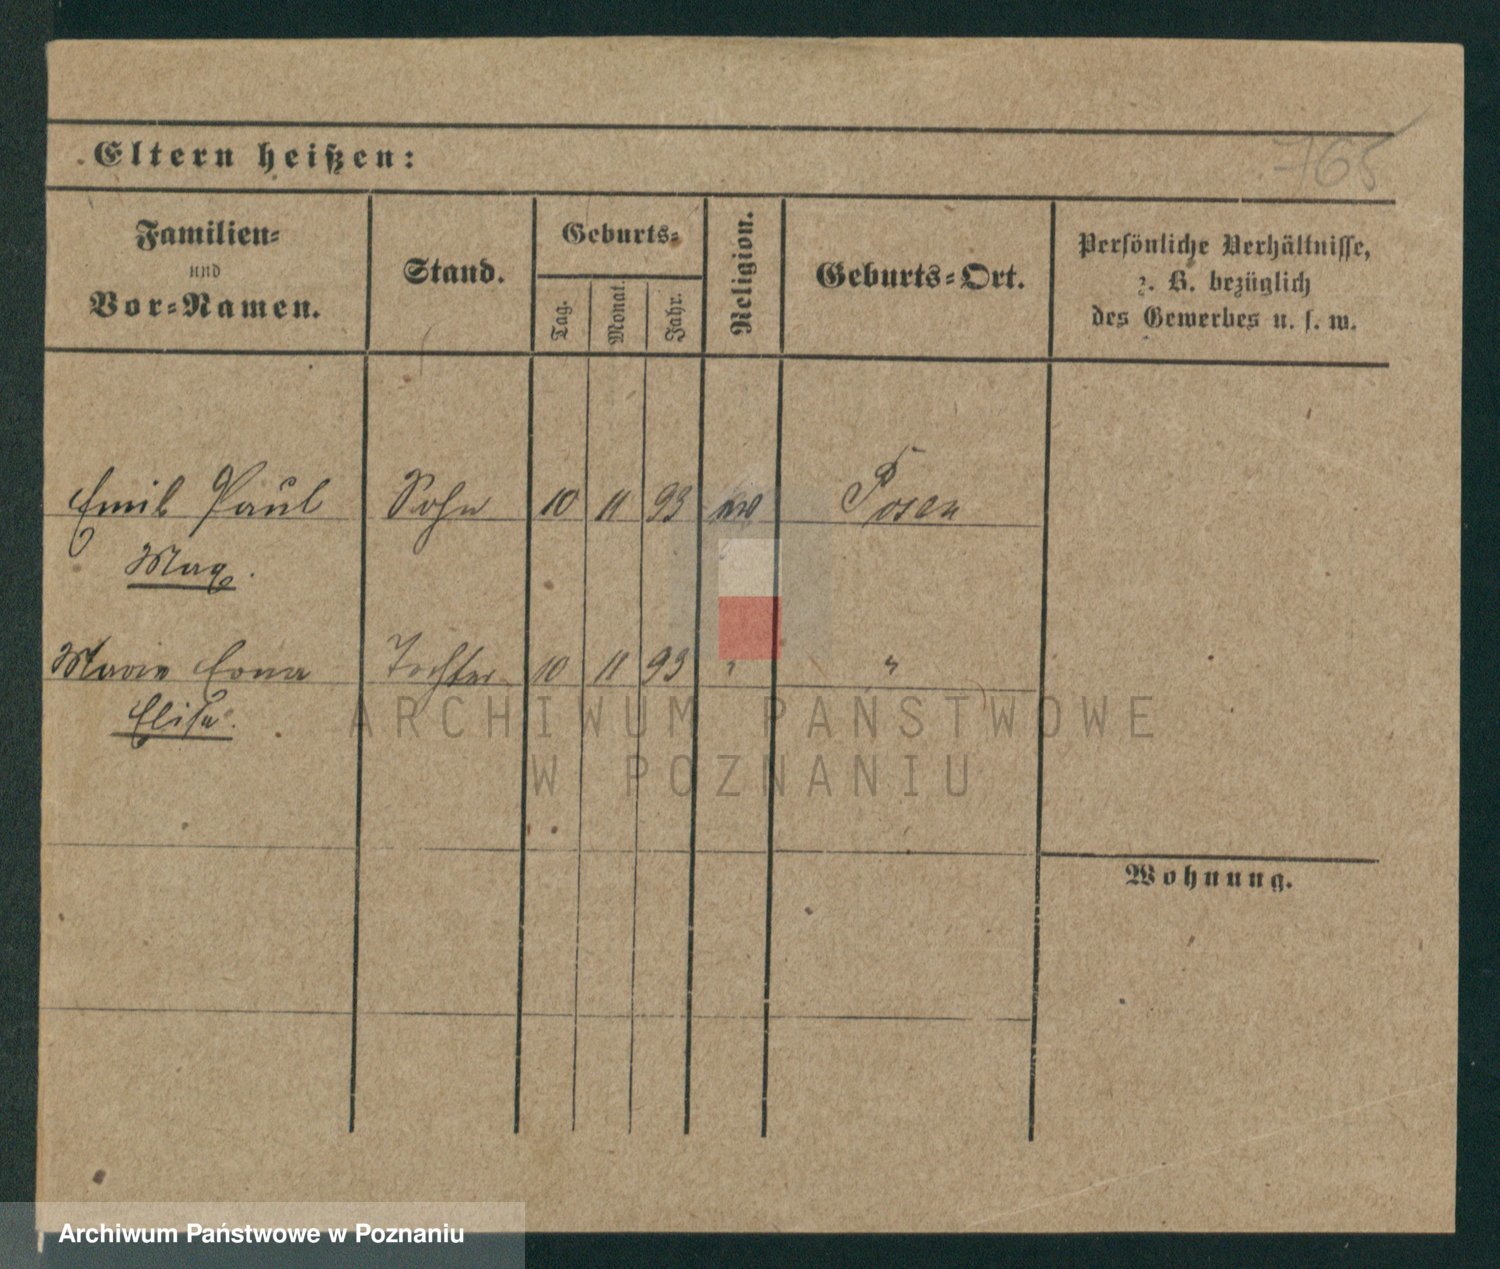 Eltern heißen:
765
Familien=
und
Vor=Namen.
Stand.
Geburts=
Tag.
Monat.
Jahr.
Religion.
Geburts=Ort.
Persönliche Verhältnisse,
z. B. bezüglich
des Gewerbes u. s. w.
Emil Paul Sohn 10 11 93 Posen
Max.
Marie Erna Tochter 10 11 93 " "
Elise.
ARCHIWUM PAŃSTWOWE
W POZNANIU
Wohnung.
Archiwum Państwowe w Poznaniu